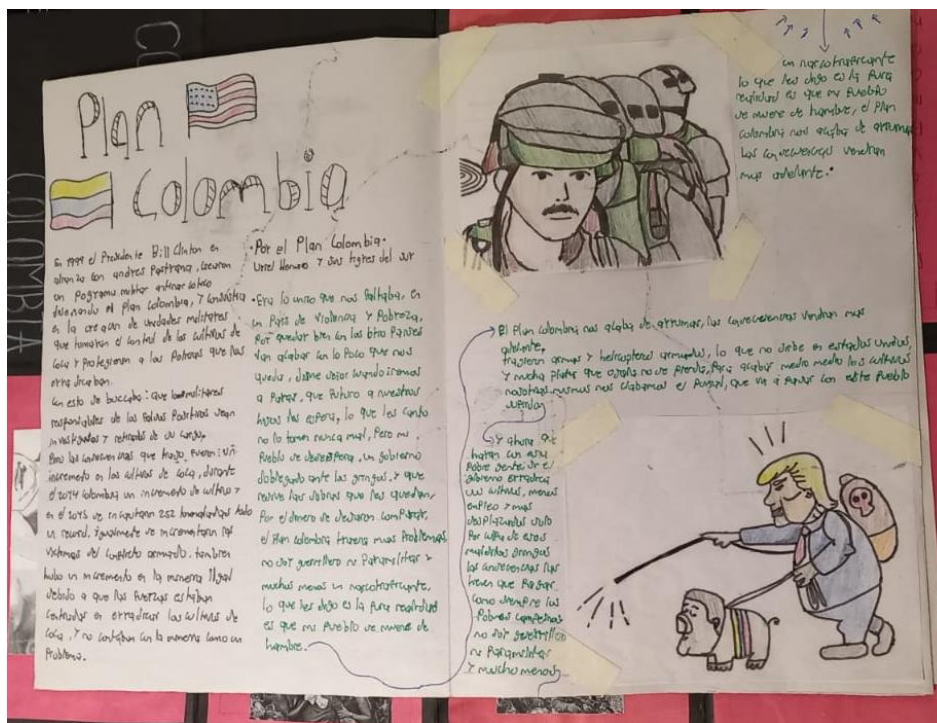 Plan
Colombia
En 1999 el Presidente Bill Clinton en
alianza con andres Pastrana, crearon
un Programa militar antinarcotico
Plan Colombia, y consistia
en la creacion de unidades militares
que tomaran el control de los cultivos de
coca y protegieran a las
Con esto se buscaba: que los militares
responsables de los falsos Positivos sean
investigados y retirados de su cargo,
Pero las consecuencias que trajo, fueron: un
incremento en los cultivos de coca, durante
el 2014 Colombia un incremento de cultivo y
en el 2015 se incautaron 252 toneladas todo
un record. igualmente se incrementaron las
victimas del conflicto armado. tambien
hubo un incremento en la mineria Ilegal
debido a que las fuerzas estaban
centradas en erradicar los cultivos de
coca, y no contaban con la mineria como un
Problema.
•Por el Plan Colombia•
Uriel Henao y sus tigres del sur
•Era lo unico que nos faltaba, en
un Pais de violencia y Pobreza,
Por quedar bien con los otro Paises
van acabar con lo Poco que nos
queda, dime señor cuando iremos
a Parar, que futuro a nuestros
hijos les espera, lo que les canto
no lo tomen nunca mal, Pero mi
Pueblo se desespera, un gobierno
doblegado ante los gringos, y que
recibe las sobras que les quedan,
Por el dinero se dejaron comprar,
el Plan Colombia traera mas Problemas
no soy guerrillero ni Paramilitar y
muchos menos un narcotraficante,
lo que les digo es la Pura realidad
es que mi Pueblo se muere de
hambre.
El Plan Colombia nos acaba de arruinar, las consecuencias vendran mas
adelante,
trajeron armas y helicopteros armados, lo que no sirve en estados Unidos,
y mucha plata que ojala no se pierda, para acabar medio medio los cultivos
nosotros mismos nos clabamos el Puñal, que va a pasar con este Pueblo
y ahora que
haran con esta
Pobre gente si el
gobierno erradica
sus cultivos, menos
empleo y mas
desplazados solo
Por culpa de esos
malditos gringos
las consecuencias las
tienen que Pagar,
como siempre los
Pobres campesinos
no soy guerrillero
ni Paramilitar
y mucho menos
un narcotraficante
lo que les digo es la Pura
realidad es que mi Pueblo
se muere de hambre, el Plan
Colombia nos acaba de arruinar
las consecuencias vendran
mas adelante.•
COLOMBIA